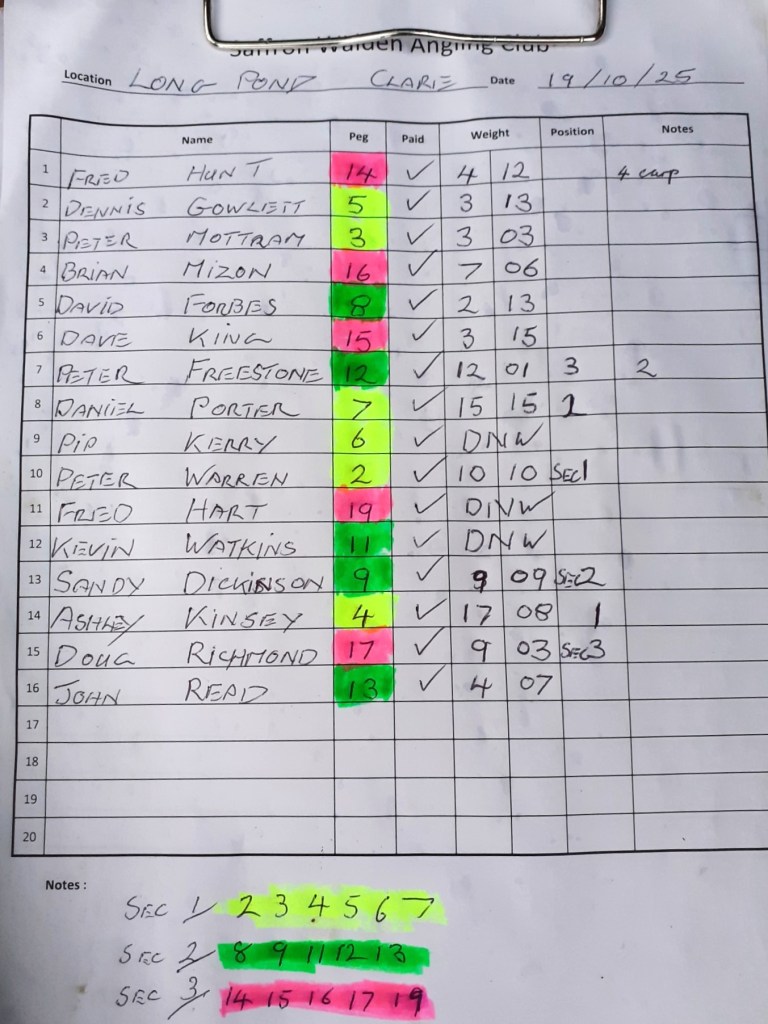 Saffron Walden Angling Club
Location LONG POND CLARIE Date 19/10/25
Name Peg Paid Weight Position Notes
1 FRED HUNT 14 ✓ 4 12 4 carp
2 DENNIS GOWLETT 5 ✓ 3 13
3 PETER MOTTRAM 3 ✓ 3 03
4 BRIAN MIZON 16 ✓ 7 06
5 DAVID FORBES 8 ✓ 2 13
6 DAVE KING 15 ✓ 3 15
7 PETER FREESTONE 12 ✓ 12 01 3 2
8 DANIEL PORTER 7 ✓ 15 15 2
9 PIP KERRY 6 ✓ DNW
10 PETER WARREN 2 ✓ 10 10 SEC1
11 FRED HART 19 ✓ DNW
12 KEVIN WATKINS 11 ✓ DNW
13 SANDY DICKINSON 9 ✓ 9 09 SEC2
14 ASHLEY KINSEY 4 ✓ 17 08 1
15 DOUG RICHMOND 17 ✓ 9 03 SEC3
16 JOHN READ 13 ✓ 4 07
17
18
19
20
Notes :
SEC 1/ 2 3 4 5 6 7
SEC 2/ 8 9 11 12 13
SEC 3/ 14 15 16 17 19